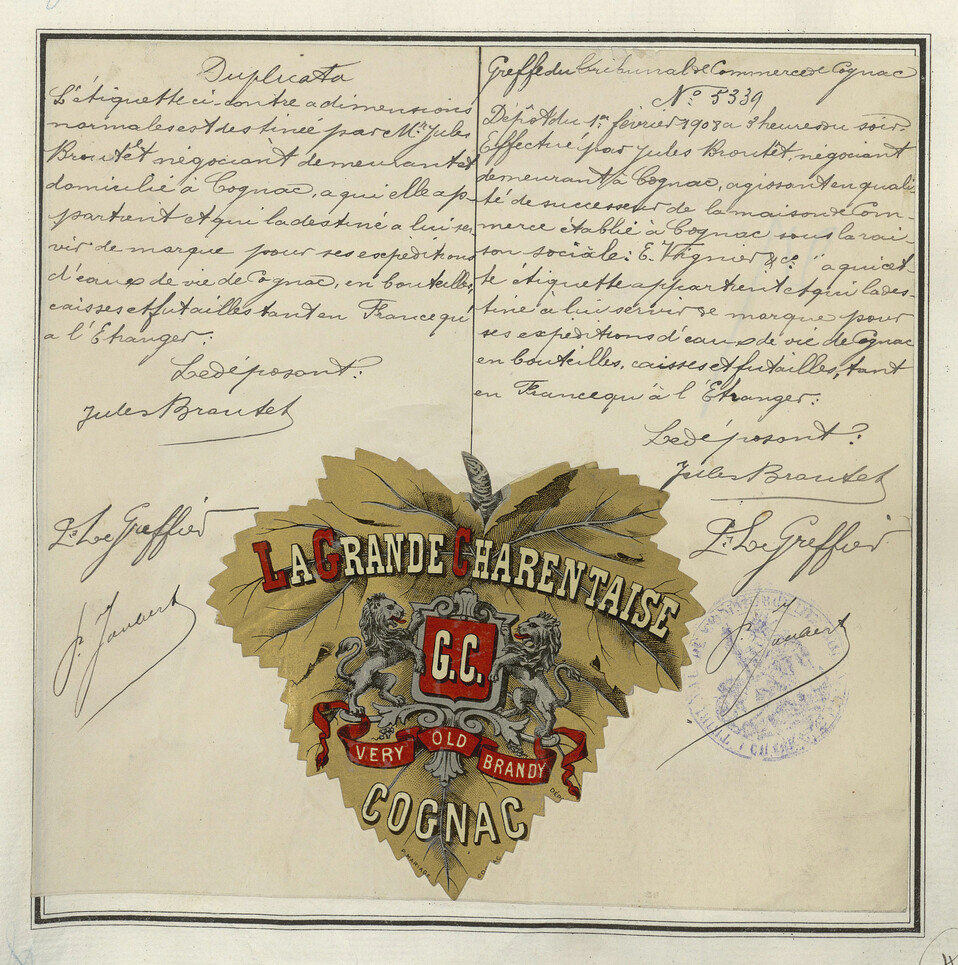 Duplicata
L'étiquette ci-contre a dimensions
normales est destinée par Mr Jules
Broutet négociant demeurant et
domicilié à Cognac, a qui elle ap-
partient et qui la destine a lui ser
vir de marque pour ses expéditions
d'eaux de vie de Cognac, en bouteilles,
caisses et futailles tant en France qu'
a l'Etranger.
Le déposant:
Jules Broutet
Pr Le Greffier
Greffe du Tribunal de Commerce de Cognac
No 5339
Dépôt du 1er février 1908 a 3 heures du soir.
Effectué par Jules Broutet, négociant
demeurant à Cognac, agissant en quali-
té de successeur de la maison de Com-
merce établie à Cognac sous la rai-
son sociale: E. Vagnier & Co. " a qui cet-
te étiquette appartient et qui la des-
tine a lui servir de marque pour
ses expéditions d'eaux de vie de Cognac
en bouteilles, caisses et futailles, tant
en France qu'à l'Etranger:
Le déposant:
Jules Broutet
Pr Le Greffier
LA GRANDE CHARENTAISE
G.C.
VERY OLD BRANDY
COGNAC